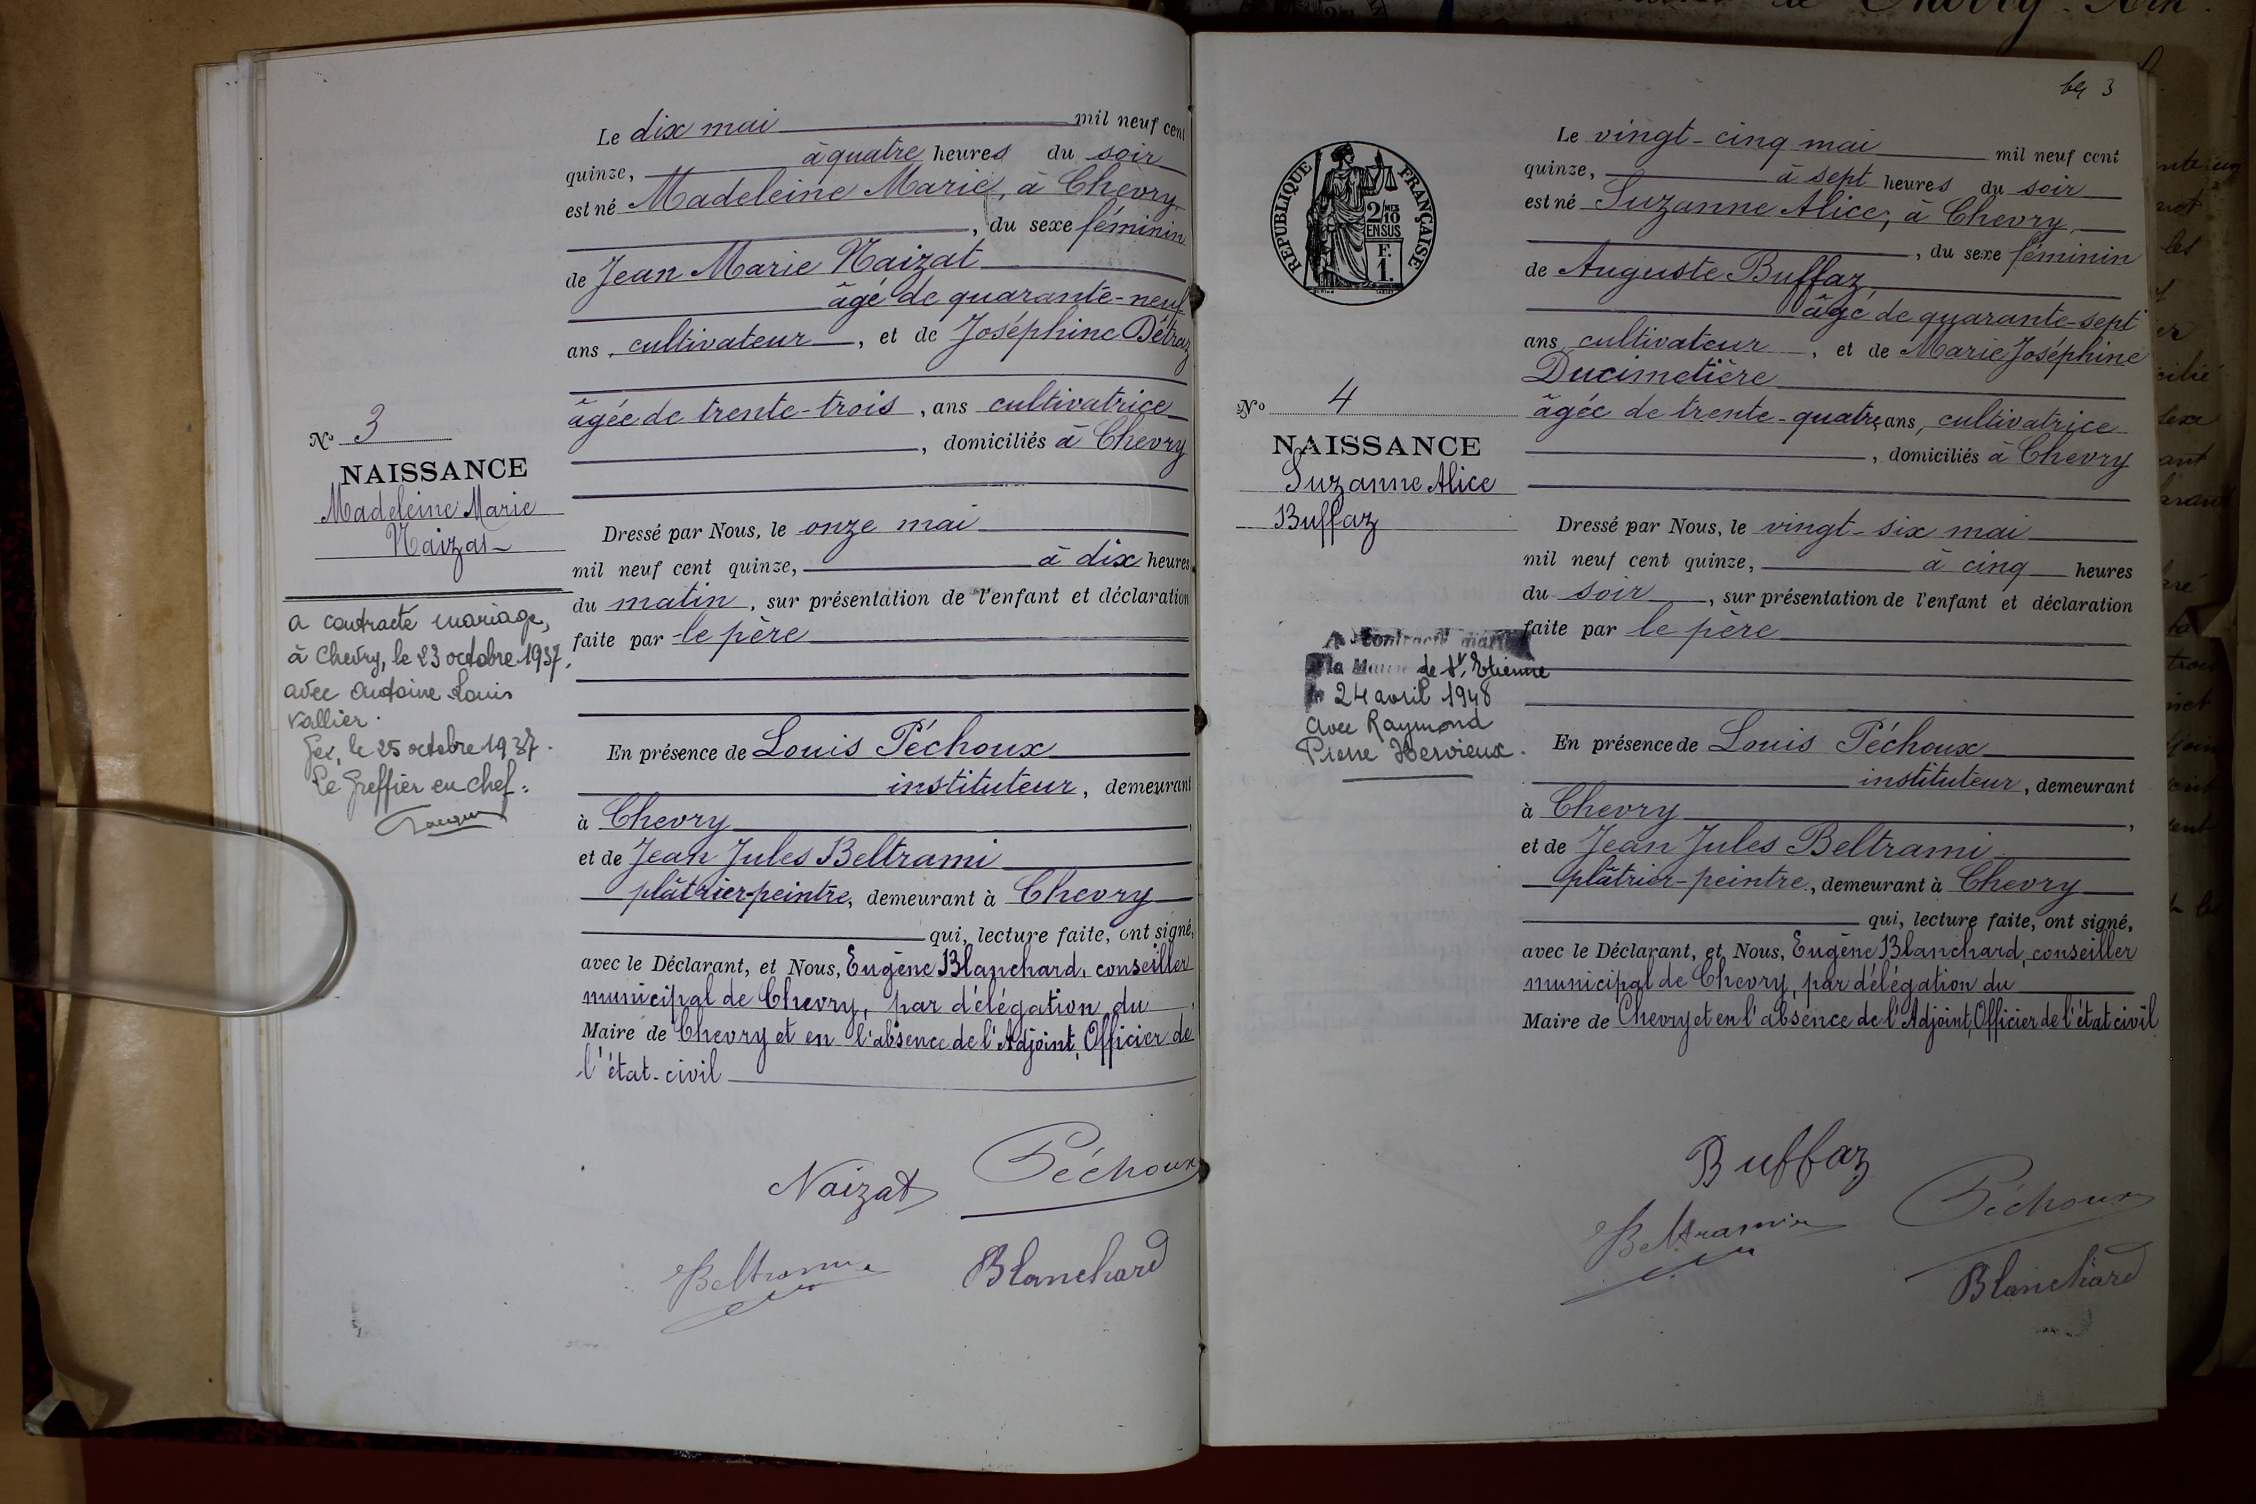 Le dix mai mil neuf cent
quinze, à quatre heures du soir
est né Madeleine Marie, à Chevry
, du sexe féminin
de Jean Marie Naizat
âgé de quarante-neuf
ans, cultivateur, et de Joséphine Détraz
âgée de trente-trois, ans cultivatrice
, domiciliés à Chevry
Nº 3
NAISSANCE
Madeleine Marie
Naizat
a contracté mariage,
à Chevry, le 23 octobre 1937,
avec Antoine Louis
Vallier.
Gex, le 25 octobre 1937.
Le Greffier en chef:
Dressé par Nous, le onze mai
mil neuf cent quinze, à dix heures
du matin, sur présentation de l'enfant et déclaration
faite par le père
En présence de Louis Péchoux
instituteur, demeurant
à Chevry,
et de Jean Jules Beltrami
plâtrier-peintre, demeurant à Chevry
qui, lecture faite, ont signé,
avec le Déclarant, et Nous, Eugène Blanchard, conseiller
municipal de Chevry, par délégation du
Maire de Chevry et en l'absence de l'Adjoint, Officier de
l'état-civil
Naizat Péchoux
Beltrami Blanchard
3
RÉPUBLIQUE FRANÇAISE
2/10 MES
EN SUS
F.
1.
Le vingt-cinq mai mil neuf cent
quinze, à sept heures du soir
est né Suzanne Alice, à Chevry
, du sexe féminin
de Auguste Buffaz,
âgé de quarante-sept
ans cultivateur, et de Marie Joséphine
Ducimetière
âgée de trente-quatre, ans, cultivatrice
, domiciliés à Chevry
Nº 4
NAISSANCE
Suzanne Alice
Buffaz
A contracté mariage
à la Mairie de St Etienne
le 24 avril 1948
avec Raymond
Pierre Hervieux.
Dressé par Nous, le vingt-six mai
mil neuf cent quinze, à cinq heures
du soir, sur présentation de l'enfant et déclaration
faite par le père
En présence de Louis Péchoux
instituteur, demeurant
à Chevry,
et de Jean Jules Beltrami
plâtrier-peintre, demeurant à Chevry
qui, lecture faite, ont signé,
avec le Déclarant, et Nous, Eugène Blanchard, conseiller
municipal de Chevry, par délégation du
Maire de Chevry et en l'absence de l'Adjoint, Officier de l'état civil
Buffaz
Beltrami Péchoux
Blanchard